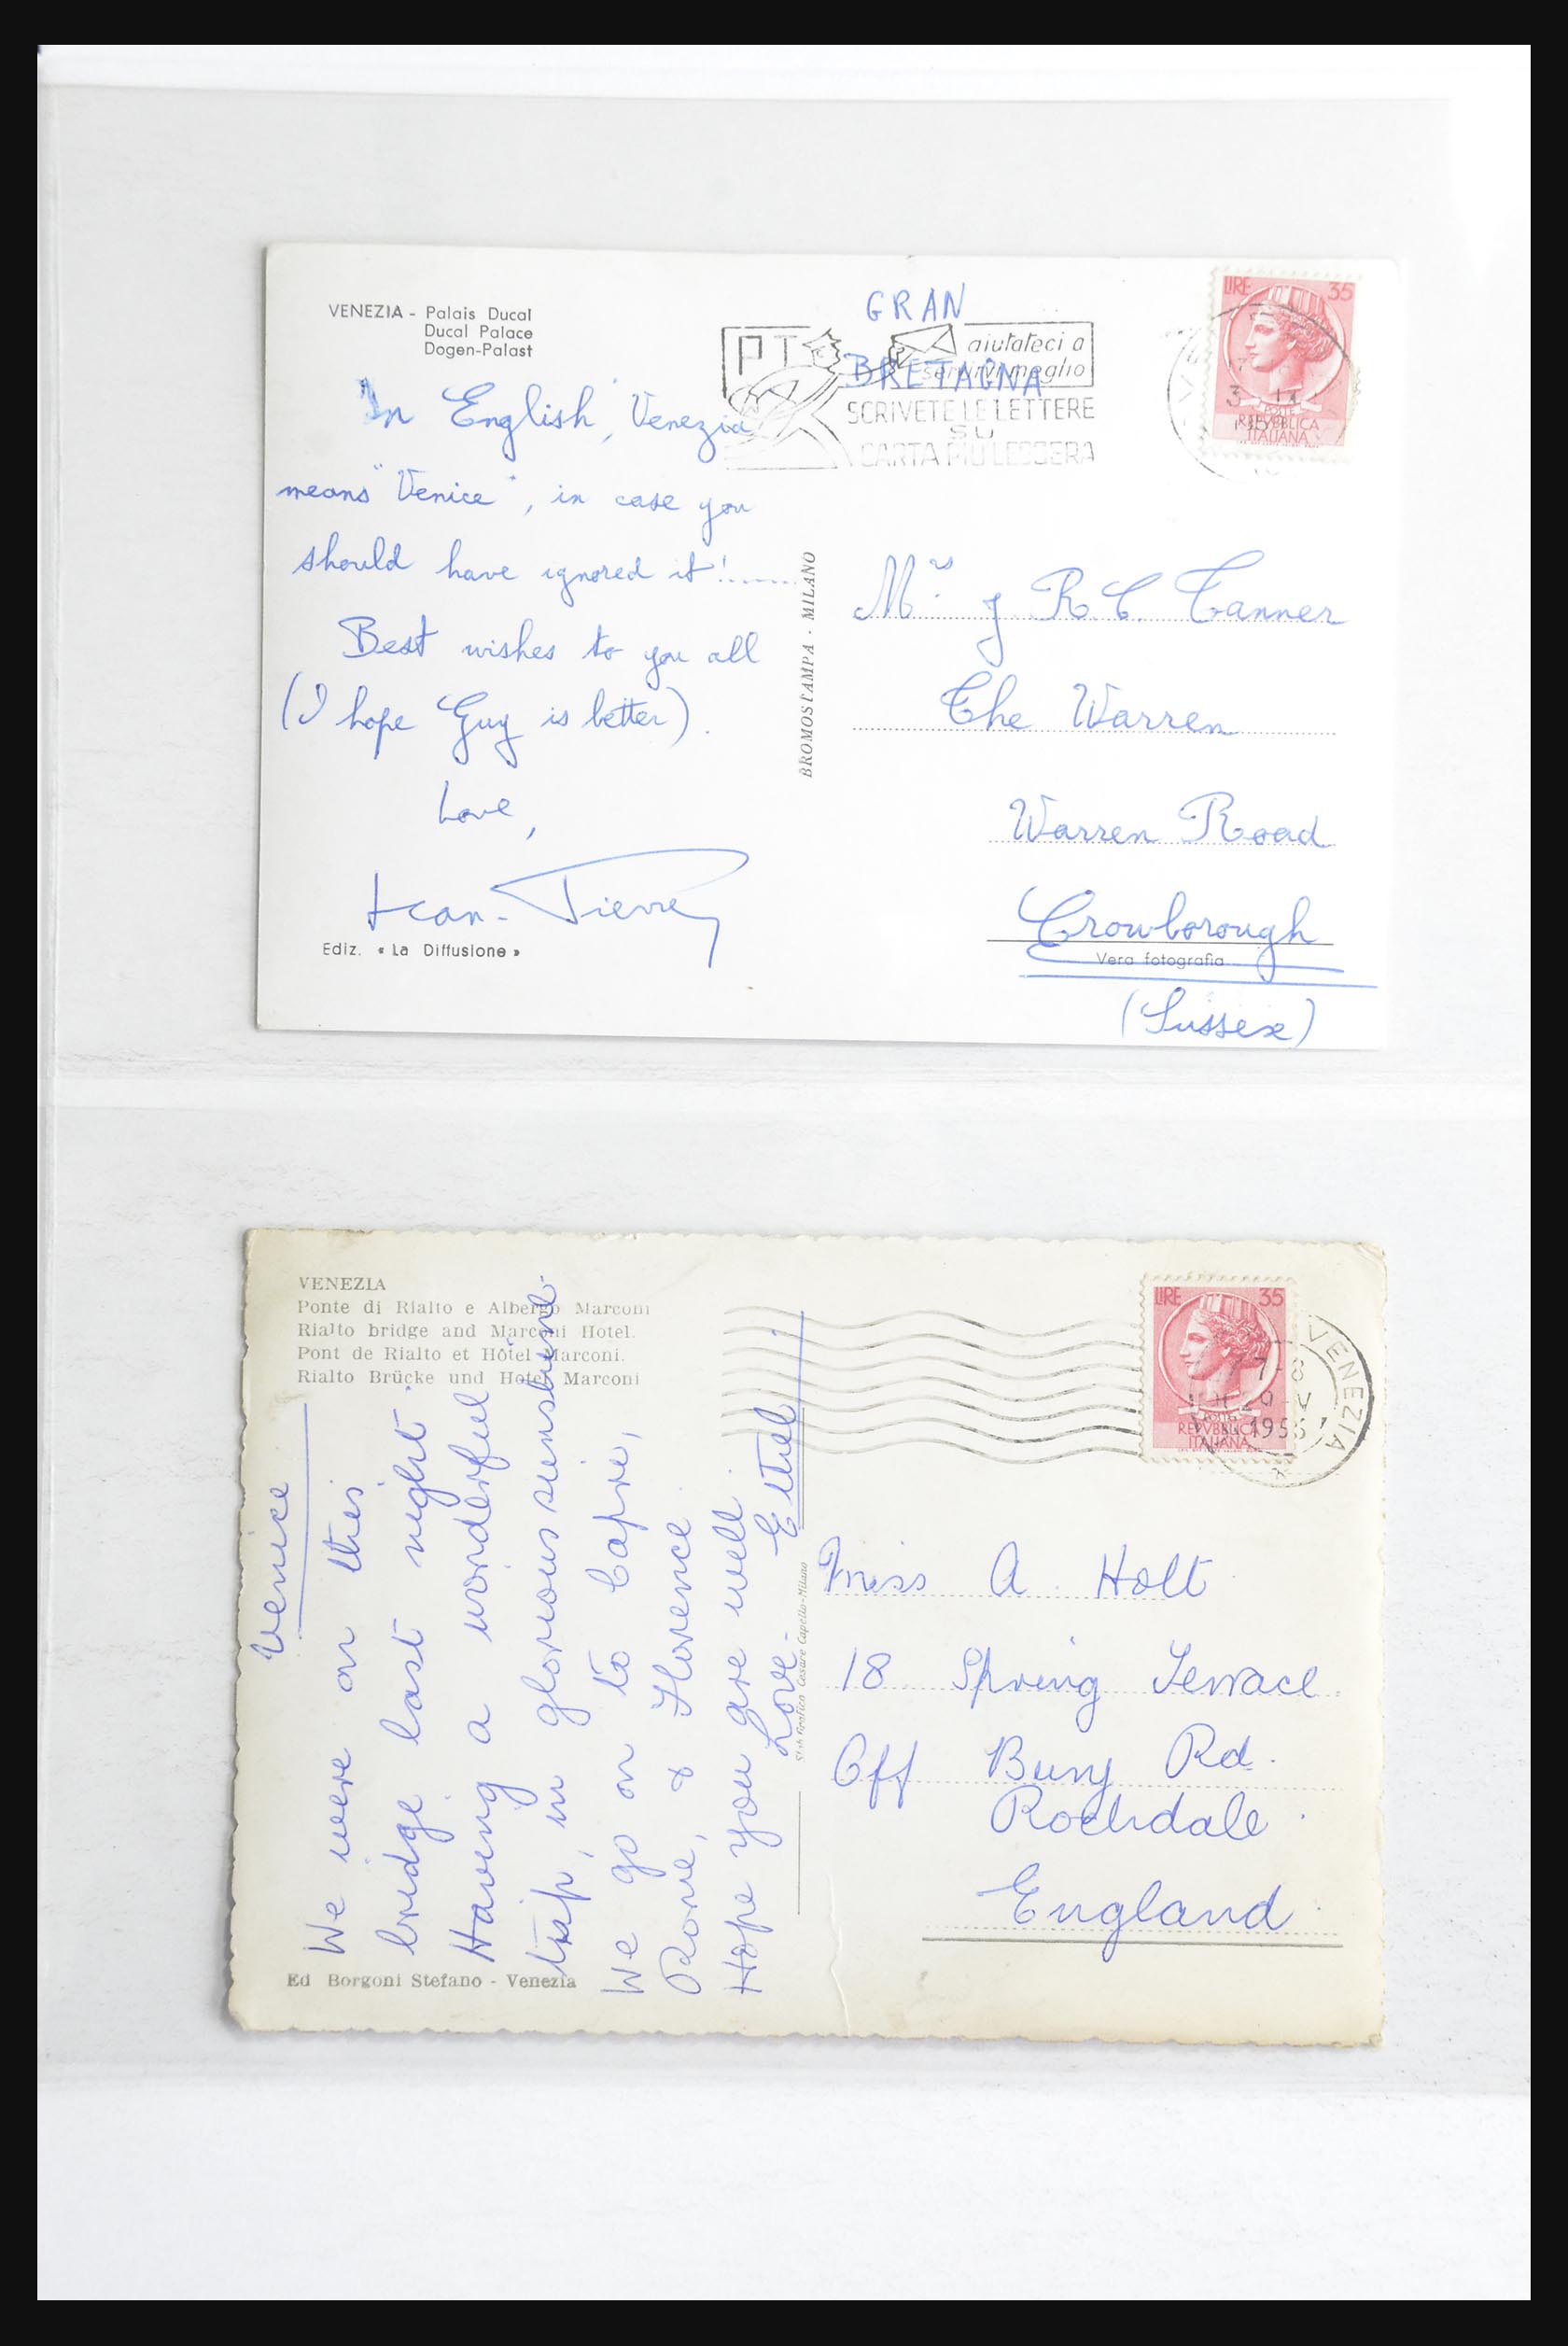 VENEZIA - Palais Ducal
Ducal Palace
Dogen-Palast
In English, Venezia
means "Venice", in case you
should have ignored it!.......
Best wishes to you all
(I hope Guy is better).
Love,
Jean-Pierre
Ediz. « La Diffusione »
BROMOSTAMPA - MILANO
GRAN
BRETAGNA
PT
aiutateci a
servirvi meglio
SCRIVETE LE LETTERE
SU
CARTA PIÙ LEGGERA
LIRE 35
POSTE
REPVBBLICA
ITALIANA
R.C. Tanner
The Warren
Warren Road
Crowborough
Vera fotografia
(Sussex)
VENEZIA
Ponte di Rialto e Albergo Marconi
Rialto bridge and Marconi Hotel.
Pont de Rialto et Hôtel Marconi.
Rialto Brücke und Hotel Marconi
Venice
We were on this
bridge last night.
Having a wonderful
trip, in glorious sunshine.
We go on to Capri,
Rome, & Florence
Hope you are well
Love - Ethel
Ed Borgoni Stefano - Venezia
Cesare Capello-Milano
LIRE 35
POSTE
REPVBBLICA
ITALIANA
VENEZIA
Miss A. Holt
18 Spring Terrace
Off Bury Rd.
Rochdale
England